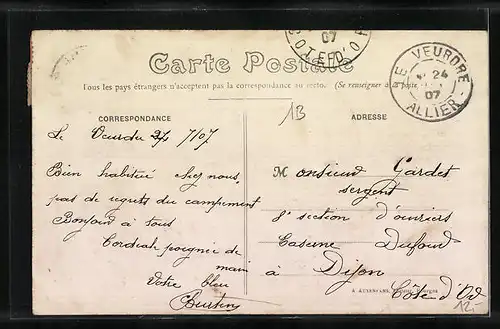 COTE-D'OR
07
Carte Postale
Tous les pays étrangers n'acceptent pas la correspondance au recto. (Se renseigner à la poste)
LE VEURDRE
24
07
ALLIER
CORRESPONDANCE
Le Veurdre 7/07
Bien habitué chez nous,
pas de regrets du campement
Bonjour à tous
Cordiale poignée de
main
Votre
13
ADRESSE
Monsieur Gardet
sergent
8e section d'ouvriers
Caserne Dufour
à Dijon
Côte d'Or